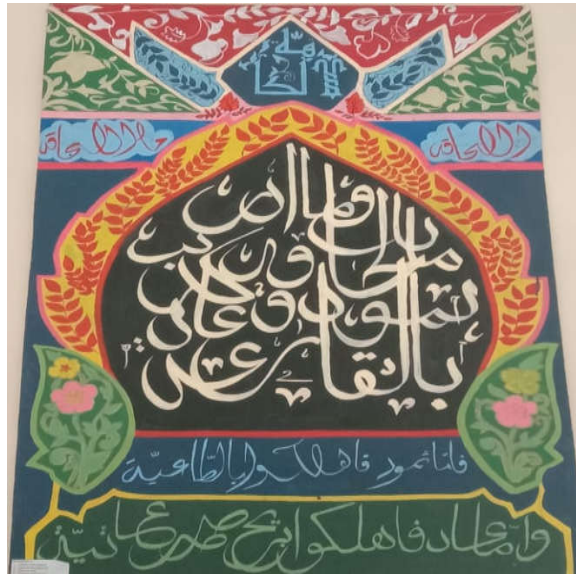 الحاقة
ما الحاقة
وما ادراك ما الحاقة كذبت ثمود وعاد بالقارعة
فاما ثمود فاهلكوا بالطاغية
واما عاد فاهلكوا بريح صرصر عاتية